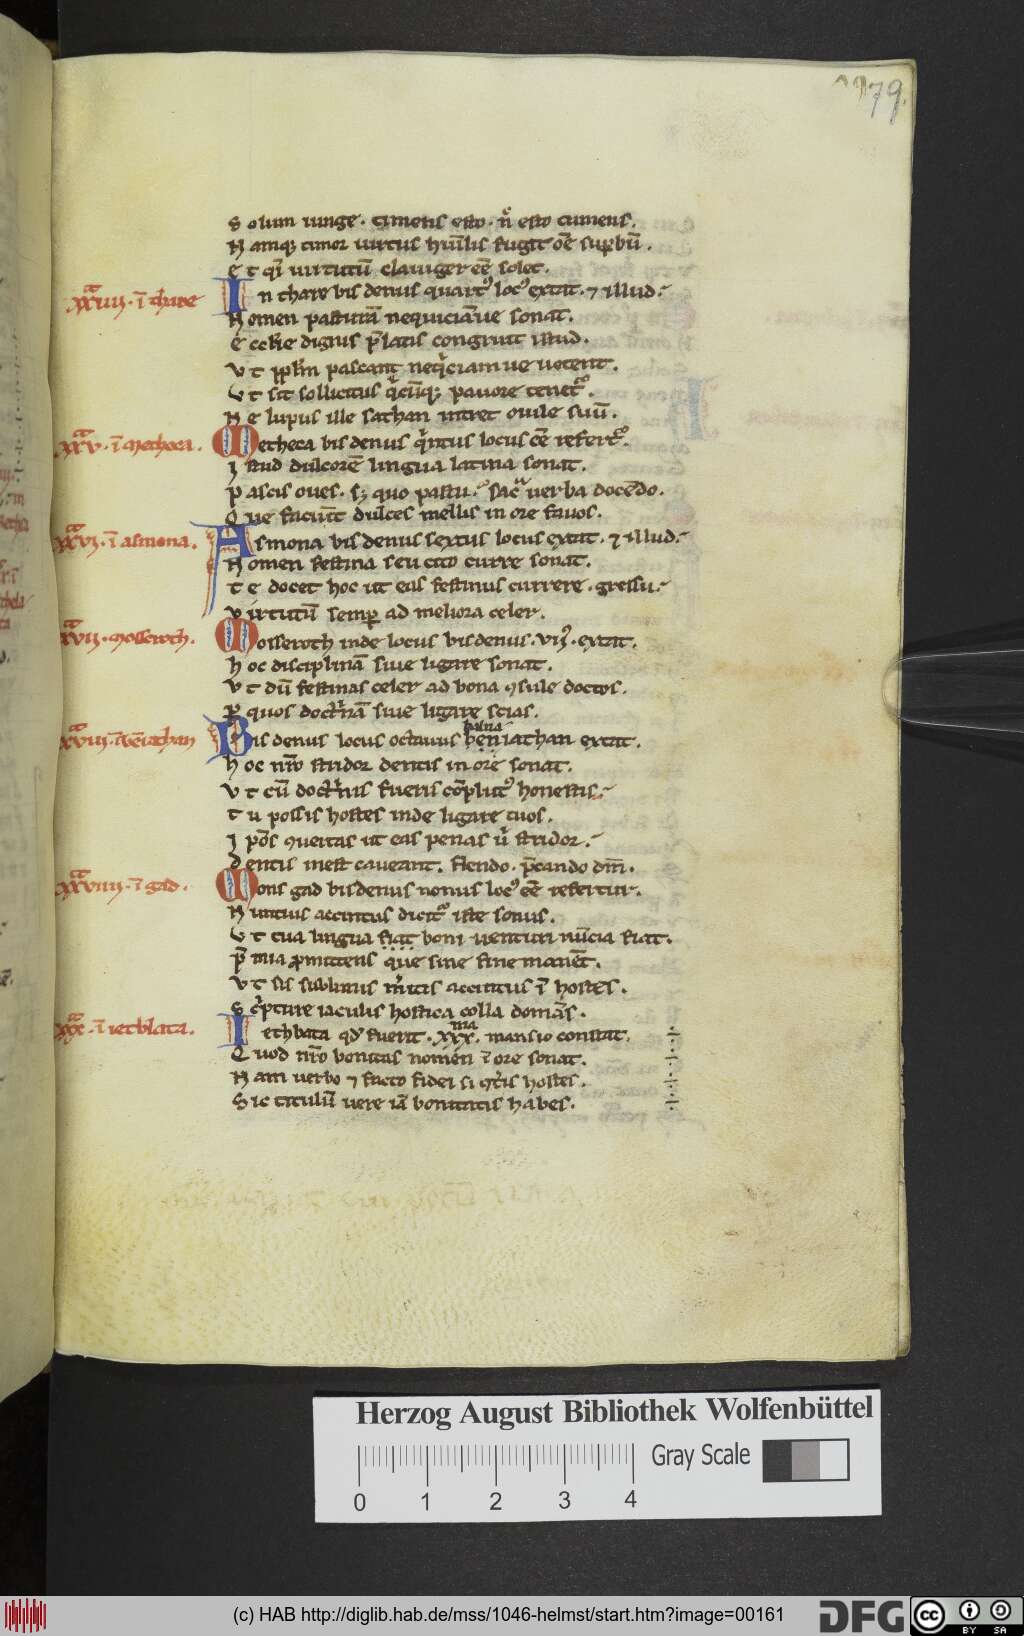 79.
S olum iunge. timens esto. n̄ esto tumens.
N amq; timor uirtus humilis fugit oē suꝑbū.
E t qͥ uirtutū clauiger eē solet.
xxiiii. ī thare
I n thare bis denus quartꝰ locꝰ extat. ⁊ illud
N omen pasturā nequiciā ue sonat.
E cclie dignis p̄latis congruit istud.
V t pplm̄ pascant neqͥciam ue uetent.
V t sit sollicitus qͥcūq; pauore tenet᷑.
N e lupus ille sathan intret ouile suū.
xxv. ī metheca.
M etheca bis denus qͥntus locus eē refert᷑.
I stud dulcorē lingua latina sonat.
P ascis oues. s; quo pastu. sacᵃ uerba docēdo.
Q ue faciūt dulces mellis in ore fauos.
xxvi. ī asmona.
A smona bis denus sextus locus extat. ⁊ illud
N omen festina seu cito curre sonat.
T e docet hoc ut eas festinus currere. gressu
V irtutū semꝑ ad meliora celer.
xxvii. mosseroth.
M osseroth inde locus bis denus. viiꝰ. extat.
H oc disciplinā siue ligare sonat.
V t dū festinas celer ad bona ꝯsule doctos.
P er quos doctͥnā siue ligare scias.
xxviii. ī beniathan
B is denus locus octauus beniathan extat.
H oc nr̄o stridor dentis in ore sonat.
V t cū doctͥnis fueris cōplutꝰ honestis
T u possis hostes inde ligare tuos.
I p̄os ꝯuertas ut eas penas uͥ stridor.
D entis inest caueant. flendo. p̄cando dm̄.
xxviiii. ī gad.
M ons gad bis denus nonus locꝰ eē refertur.
N untius accintus dicit᷑ iste sonus.
V t tua lingua fiat boni uenturi nūcia fiat.
P̄ mia ꝓmittens que sine fine manēt.
V t sis sublimis mͥtis accintus ī hostes.
S cͥpture iaculis hostica colla domās.
xxx. ī ietbata.
I ethbata qd̄ fuerit. xxx.ᵐᵃ mansio constat.
Q uod nr̄o bonitas nomen ī ore sonat.
N am uerbo ⁊ facto fidei si ꝯtͥis hostes.
S ic titulū uere iā bonitatis habes.
Herzog August Bibliothek Wolfenbüttel
Gray Scale
0 1 2 3 4
(c) HAB http://diglib.hab.de/mss/1046-helmst/start.htm?image=00161
DFG
cc BY SA